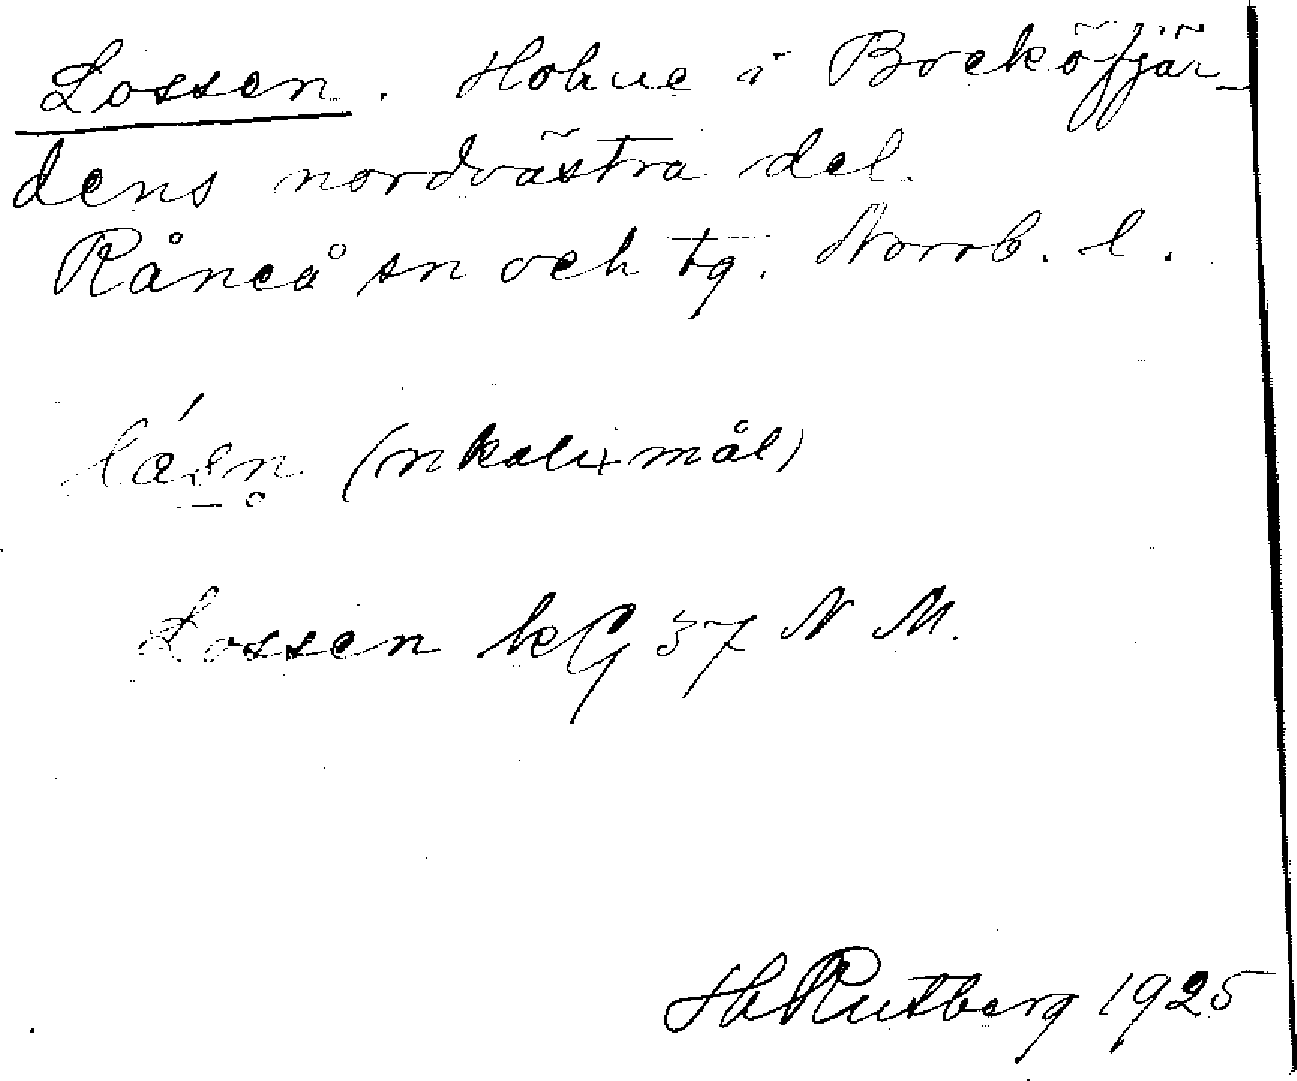 Lossen. Holme i Bocköfjär-
dens nordvästra del.
Råneå sn och tg. Norrb. l.
(nkalixmål)
Lossen kG 37 N M.
Hd Rutberg 1925